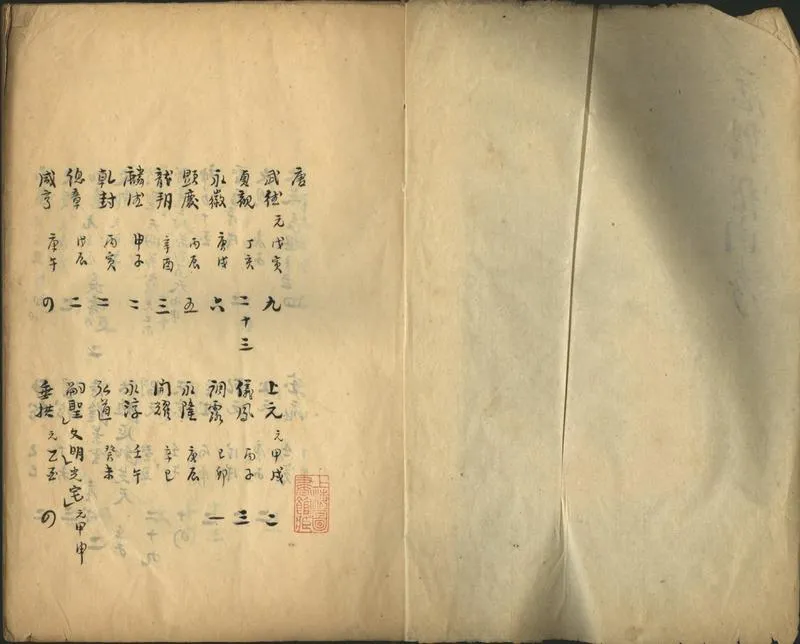 唐
武德 元戊寅 九
貞觀 丁亥 二十三
永徽 庚戌 六
顯慶 丙辰 五
龍朔 辛酉 三
麟德 甲子 二
乾封 丙寅 二
總章 戊辰 二
咸亨 庚午 四
上元 元甲戌 二
儀鳳 丙子 三
調露 己卯 一
永隆 庚辰
開耀 辛巳
永淳 壬午
弘道 癸未
嗣聖」文明」光宅」元甲申
垂拱 元乙酉 四
上海圖
書館藏